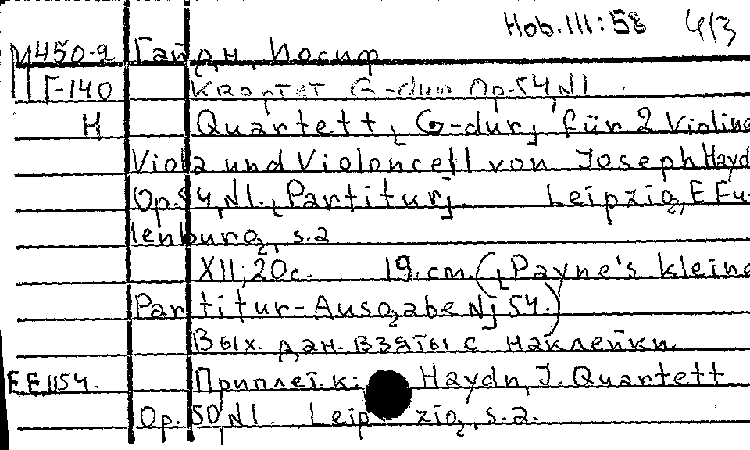 Hob.III:58 4/3
М450-2 Гайдн, Иосиф
Г-140 Квартет G-dur Op.54, N1.
Н Quartett, [G-dur] für 2 Violine
Viola und Violoncell von Joseph Hayd
Op.54, N1. [Partitur] Leipzig, E Eu-
lenburg, s.a
XII; 20c. 19.cm. ([Payne's kleine
Partitur-Ausgabe N] 54.)
Вых. дан. взяты с наклейки.
E.E.1154. Приплет. к: Haydn, J. Quartett
Op. 50, N1. Leipzig, s.a.